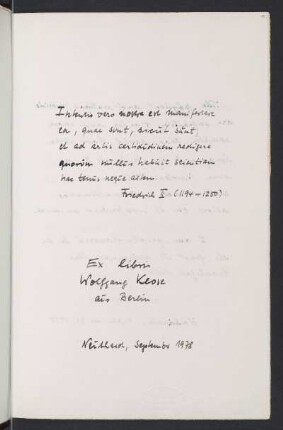 Intentio vero nostra est manifestare
ea, quae sunt, sicut sunt,
et ad artis certitudinem redigere
quorum nullus habuit scientiam
hactenus neque artem.
Friedrich II (1194-1250)
Ex libris
Wolfgang Klose
aus Berlin
Neuthard, September 1978